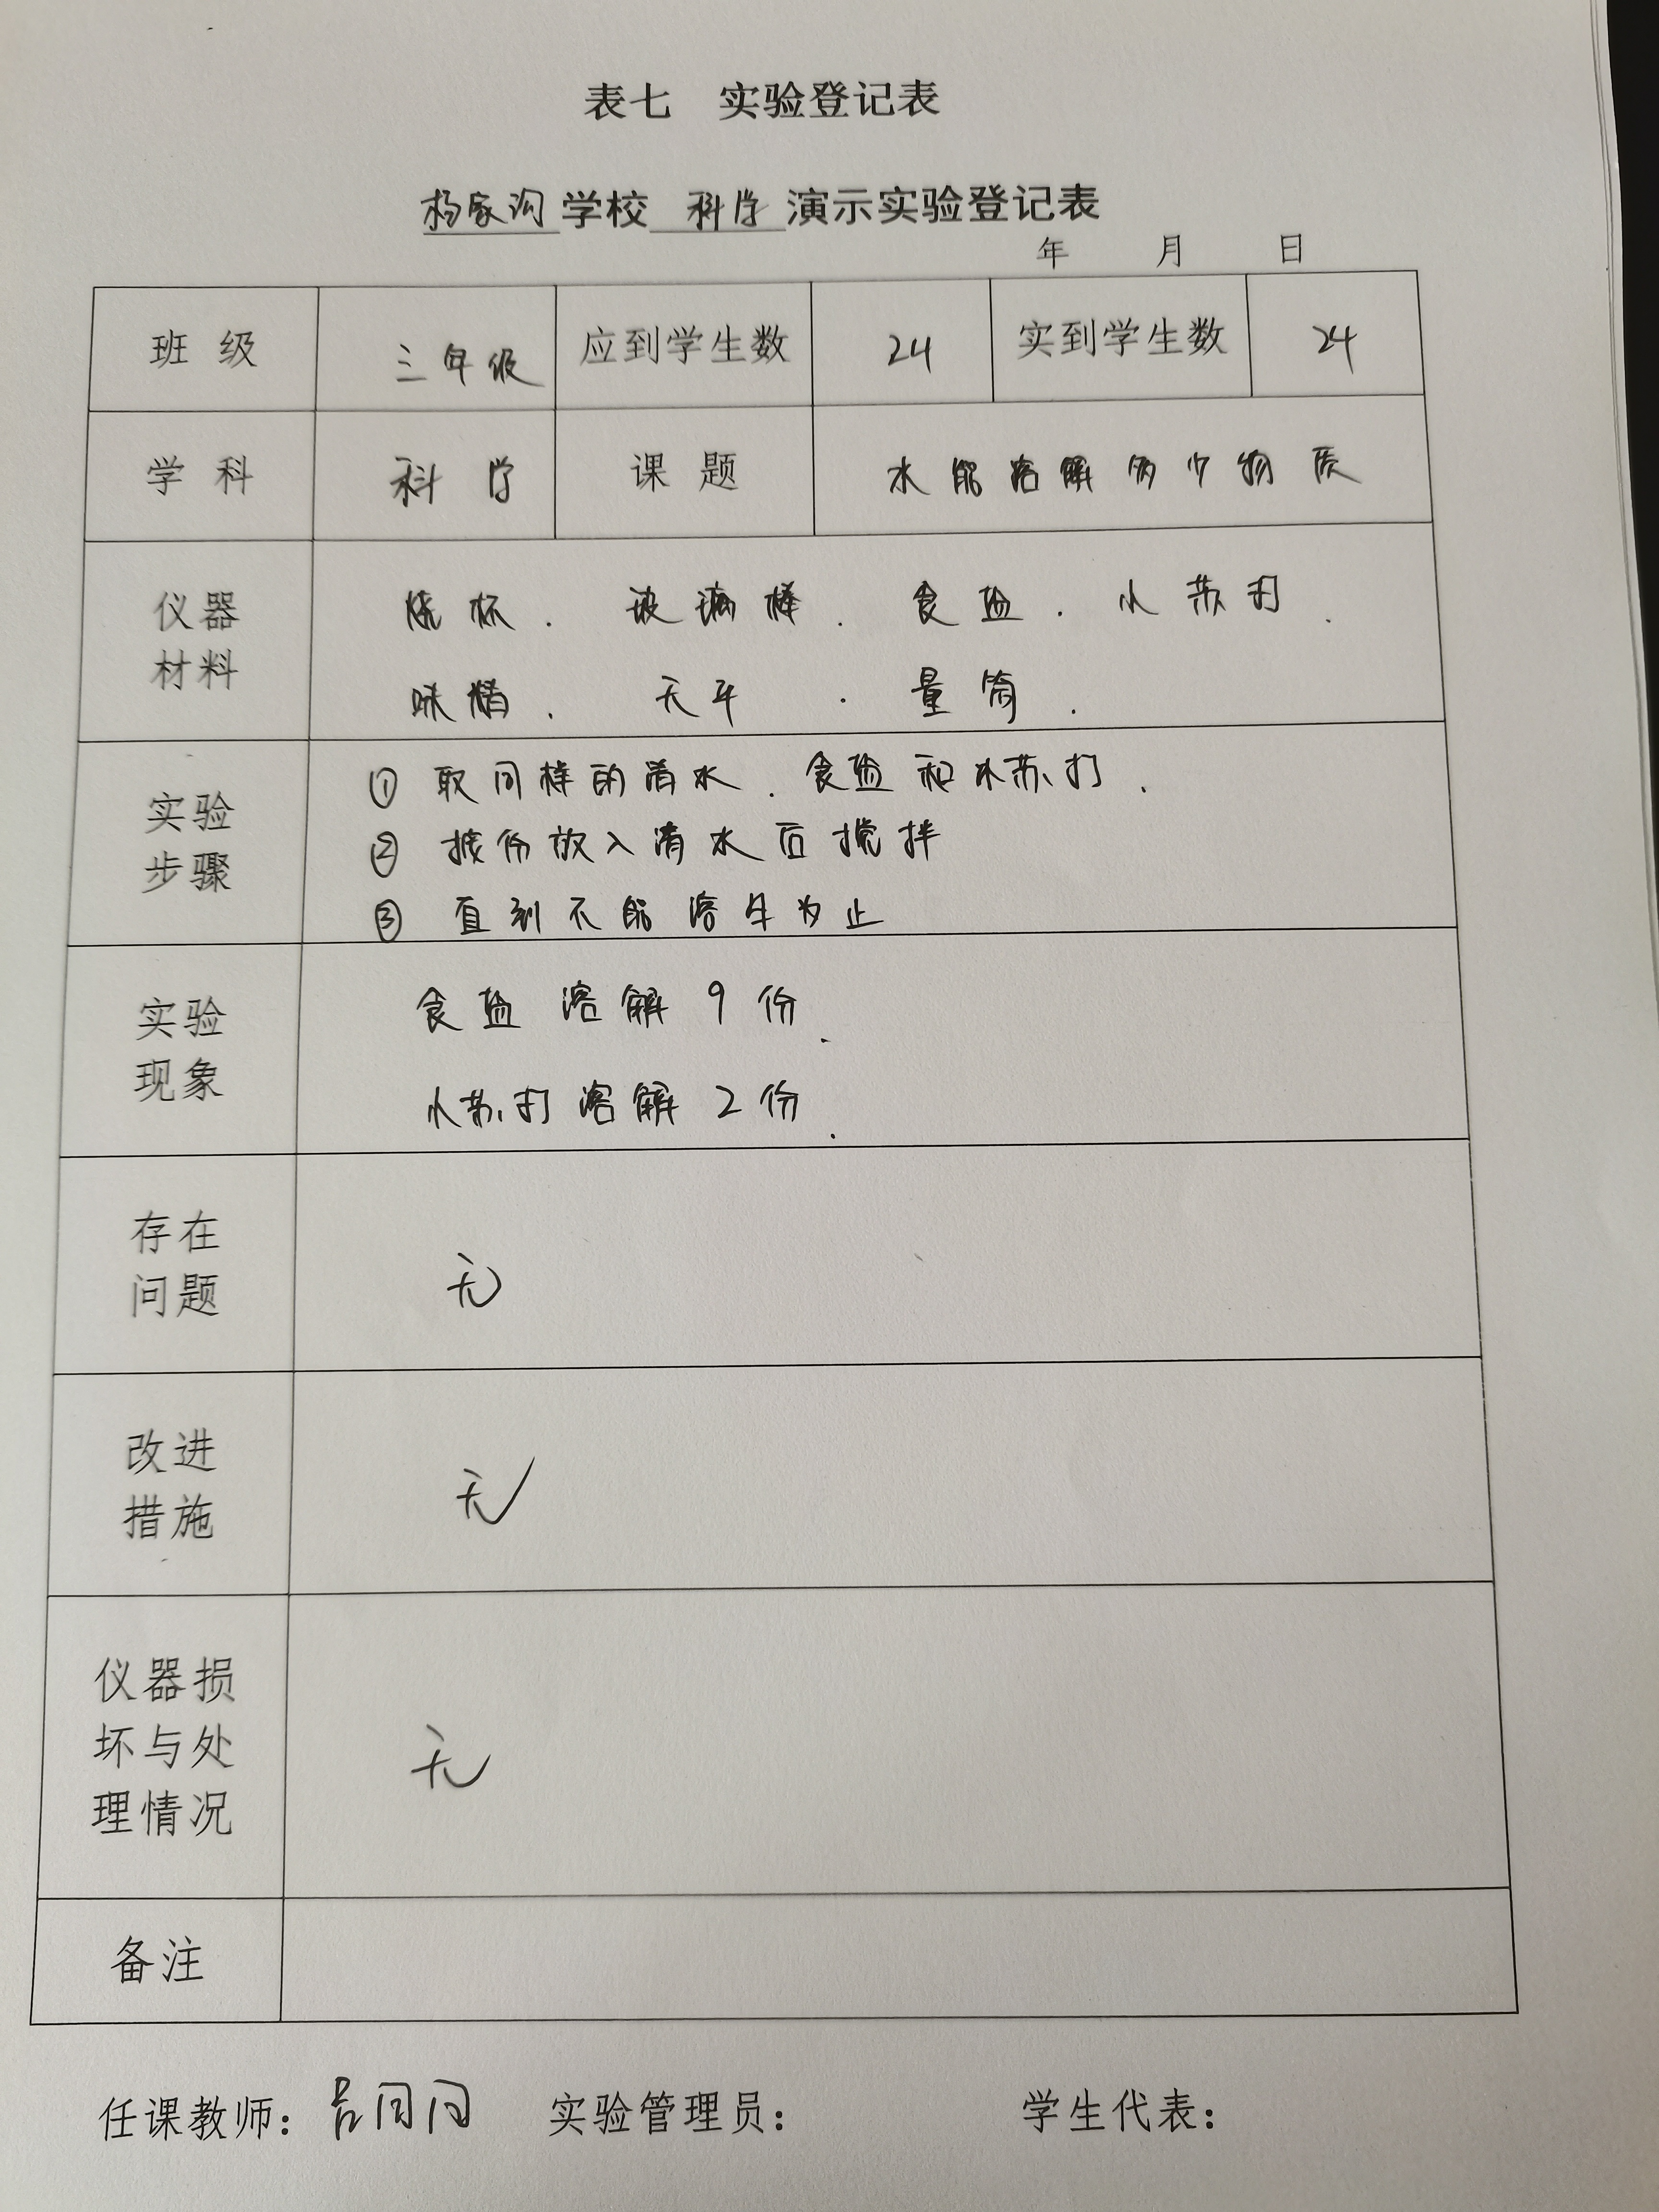 表七 实验登记表
杨家沟学校 科学 演示实验登记表
年 月 日
班 级 三年级 应到学生数 24 实到学生数 24
学 科 科学 课 题 水能溶解多少物质
仪器
材料
烧杯. 玻璃棒. 食盐. 小苏打.
味精. 天平. 量筒.
实验
步骤
① 取同样的清水. 食盐和小苏打.
② 按份放入清水后搅拌
③ 直到不能溶 为止
实验
现象
食盐溶解9份.
小苏打溶解2份.
存在
问题
无
改进
措施
无
仪器损
坏与处
理情况
无
备注
任课教师: 实验管理员: 学生代表: